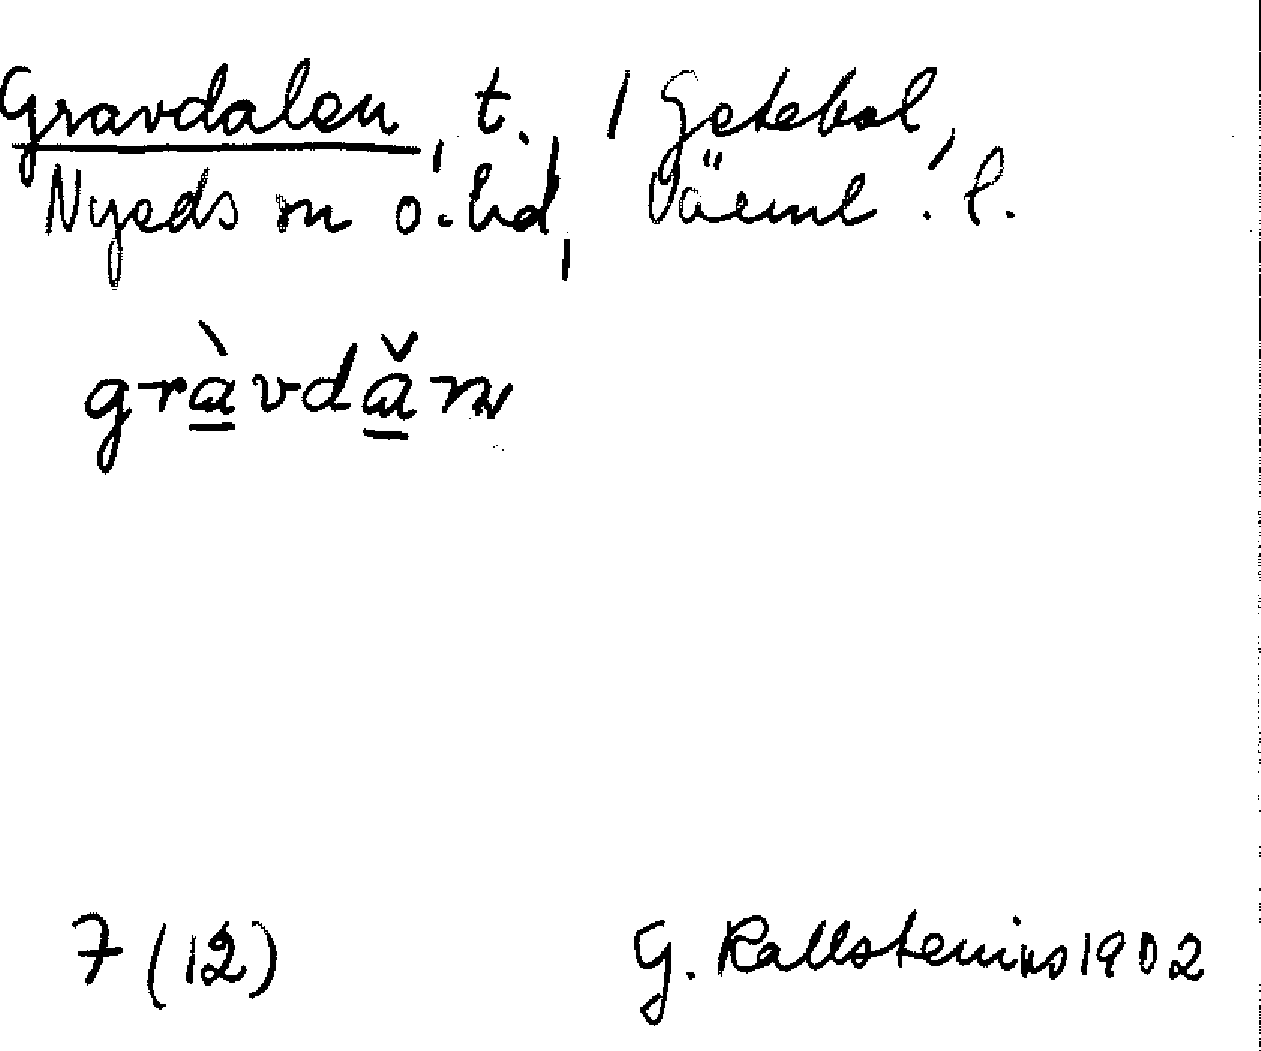 Gravdalen, t. / Getebol,
Nyeds sn o. hd, Värml. l.
gràvdăn
7 (12) G. Kallstenius 1902